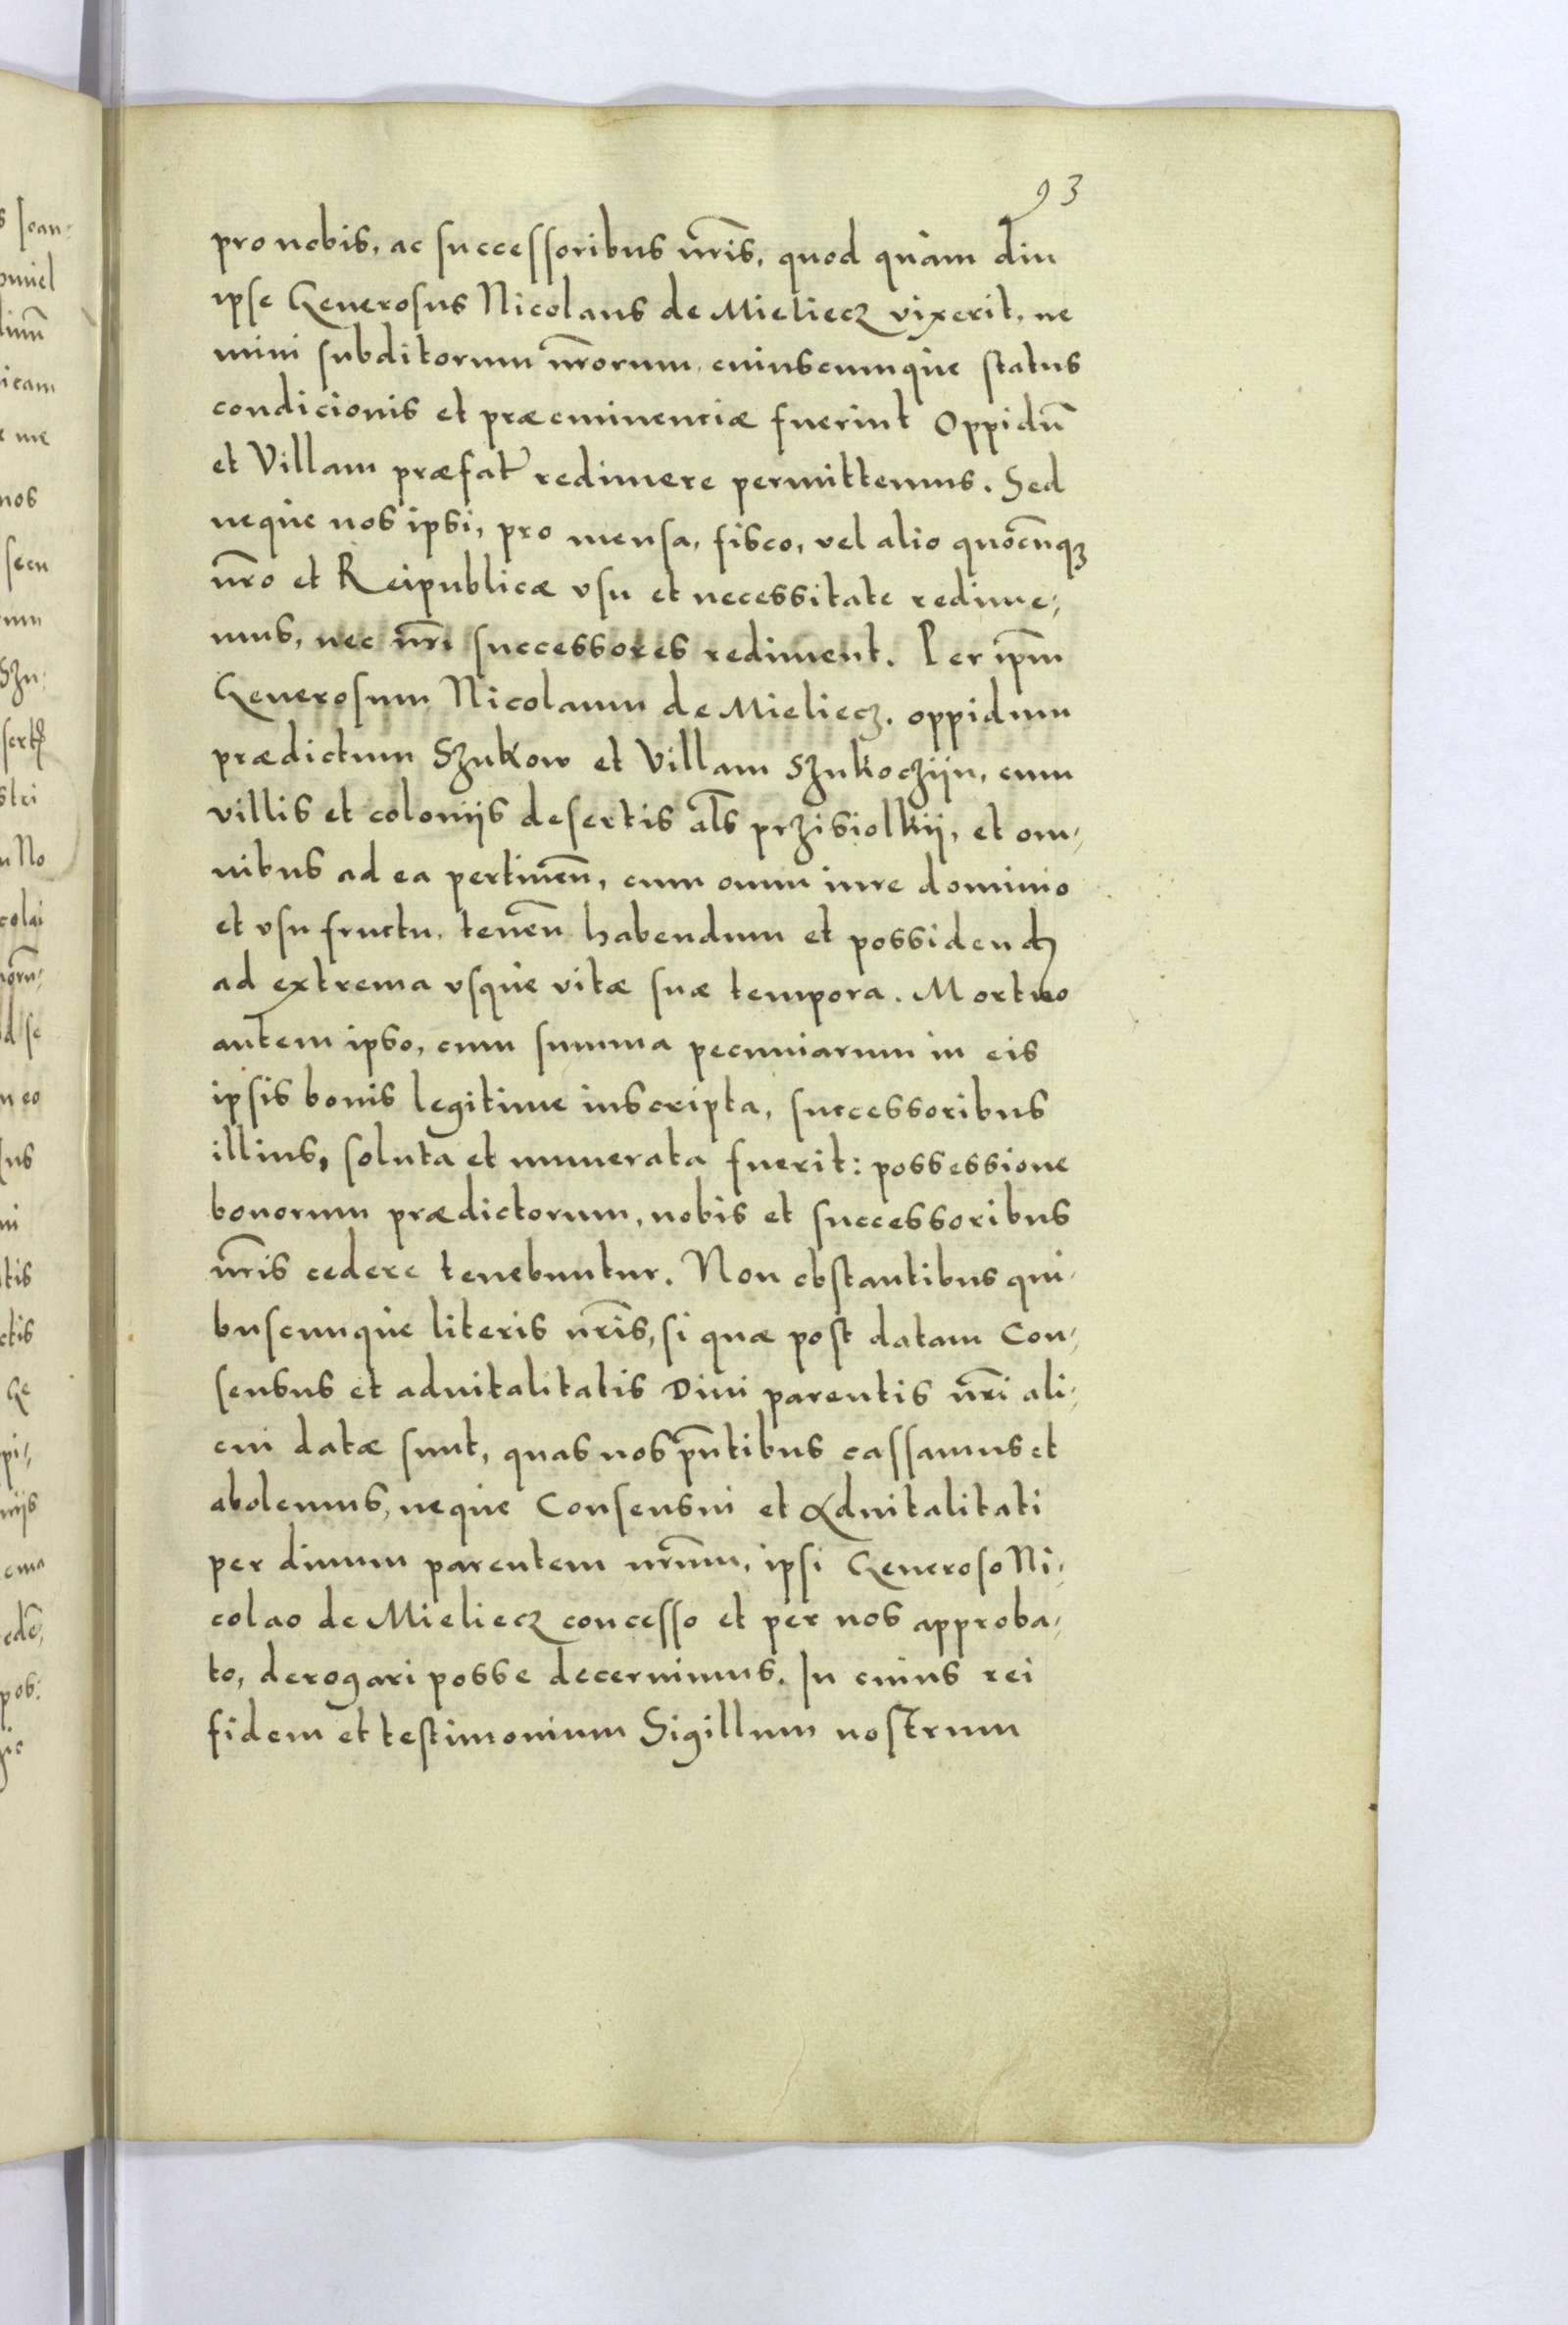 93
pro nobis, ac successoribus nr̃is, quod quàm diu
ipse Generosus Nicolaus de Mieliecz vixerit, ne
mini subditorum nr̃orum, cuiuscumque status
condicionis et præeminenciæ fuerint Oppidũ
et Villam præfat̃ redimere permittemus. Sed
neque nos ipsi, pro mensa, fisco, vel alio quocũqꝫ
nr̃o et Reipublicæ vsu et necessitate redime,
mus, nec nr̃i successores rediment. Per ip̃m
Generosum Nicolaum de Mieliecz. oppidum
prædictum Szukow et Villam Szukoczijn, cum
villis et colonijs desertis al̃s przisiolkij, et om,
nibus ad ea pertineñ, cum omni iure dominio
et vsu fructu, teneñ habendum et possidendꝫ
ad extrema vsque vitæ suæ tempora. Mortuo
autem ipso, cum summa pecuniarum in eis
ipsis bonis legitime inscripta, successoribus
illius, soluta et numerata fuerit: possessione
bonorum prædictorum, nobis et successoribus
nr̃is cedere tenebuntur. Non obstantibus qui,
buscunque literis nr̃is, si quæ post datam Con,
sensus et aduitalitatis Diui parentis nr̃i ali,
cui datæ sunt, quas nos pñtibus cassamus et
abolemus, neque Consensui et Aduitalitati
per diuum parentem nr̃um, ipsi Generoso Ni,
colao de Mieliecz concesso et per nos approba,
to, derogari posse decernimus. In cuius rei
fidem et testimonium Sigillum nostrum